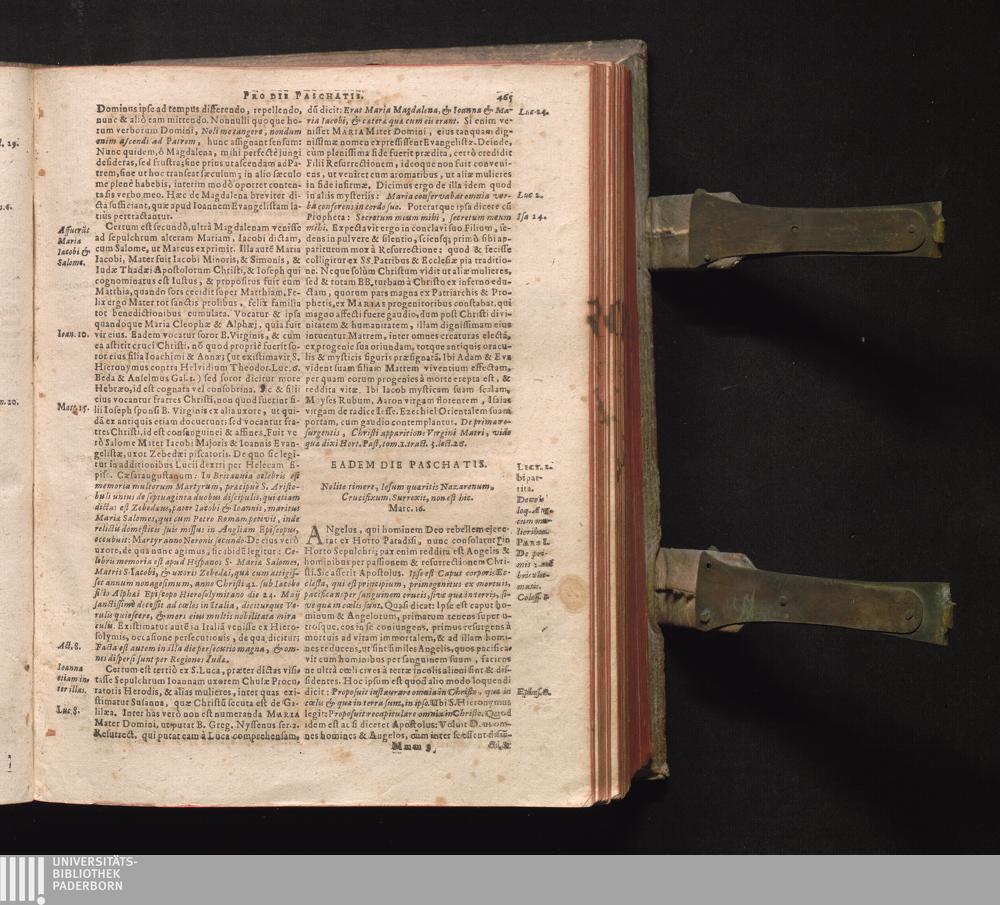 PRO DIE PASCHATIS. 465
Dominus ipse ad tempus differendo, repellendo,
nunc & aliò eam mittendo. Nonnulli quoque ho-
rum verborum Domini, Noli me tangere, nondum
enim ascendi ad Patrem, hunc assignant sensum:
Nunc quidem, ô Magdalena, mihi perfectè jungi
desideras, sed frustra; sine prius ut ascendam ad Pa-
trem, sine ut hoc transeat sæculum; in alio sæculo
me plenè habebis, interim modò oportet conten-
ta sis verbo meo. Hæc de Magdalena breviter di-
cta sufficiant, quæ apud Ioannem Evangelistam la-
tiùs pertractantur.
Certum est secundò, ultrà Magdalenam venisse
ad sepulchrum alteram Mariam, Iacobi dictam,
cum Salome, ut Marcus exprimit. Illa autē Maria
Iacobi, Mater fuit Iacobi Minoris, & Simonis, &
Iudæ Thadæi Apostolorum Christi, & Ioseph qui
cognominatus est Iustus, & propositus fuit cum
Matthia, quando sors cecidit super Matthiam. Fe-
lix ergo Mater tot sanctis prolibus, felix familia
tot benedictionibus cumulata. Vocatur & ipsa
quandoque Maria Cleophæ & Alphæi, quia fuit
vir eius. Eadem vocatur soror B. Virginis, & cum
ea astitit cruci Christi, nō quod propriè fuerit so-
ror eius filia Ioachimi & Annæ; (ut existimavit S.
Hieronymus contra Helvidium Theodor. Luc. 6.
Beda & Anselmus Gal. 1.) sed soror dicitur more
Hebræo, id est cognata vel consobrina. Sic & filii
eius vocantur fratres Christi, non quod fuerint fi-
lii Ioseph sponsi B. Virginis ex alia uxore, ut qui-
dā ex antiquis etiam docuerunt; sed vocantur fra-
tres Christi, id est consanguinei & affines. Fuit ve-
rò Salome Mater Iacobi Majoris & Ioannis Evan-
gelistæ, uxor Zebedæi piscatoris. De quo sic legi-
tur in additionibus Lucii dextri per Helecam Epi-
pisc. Cæsaraugustanum: In Britannia celebris est
memoria multorum Martyrum, præcipuè S. Aristo-
buli unius de septuaginta duobus discipulis, qui etiam
dictus est Zebedæus, pater Iacobi & Ioannis, maritus
Mariæ Salomes, qui cum Petro Romam petivit, inde
relictis domesticis suis missus in Angliam Episcopus,
occubuit: Martyr anno Neronis secundo. De eius verò
uxore, de qua nunc agimus, sic ibidē legitur: Ce-
lebris memoria est apud Hispanos S. Mariæ Salomes,
Matris S. Iacobi, & uxoris Zebedæi, quæ cum attigis-
set annum nonagesimum, anno Christi 42. sub Iacobo
filio Alphæi Episcopo Hierosolymitano die 24. Maij
sanctissimè decessit ad cœlos in Italia, diciturque Ve-
rulis quiescere, & mori eius multis nobilitata mira
culis. Existimatur autē in Italiā venisse ex Hiero-
solymis, occasione persecutionis, de qua dicitur;
Facta est autem in illa die persecutio magna, & om-
nes dispersi sunt per Regiones Iudæ.
Certum est tertiò ex S. Luca, præter dictas visi-
tasse Sepulchrum Ioannam uxorem Chusæ Procu-
ratoris Herodis, & alias mulieres, inter quas exi-
stimatur Susanna, quæ Christū secuta est de Ga-
lilæa. Inter has verò non est numeranda MARIA
Mater Domini, ut putat B. Greg. Nyssenus ser. 2.
Resurrect. qui putat eam à Luca comprehensam,
Asserūt
Maria
Iacobi &
Salome.
Ioan. 10.
Mat. 15.
Act. 8.
Ioanna
etiam in-
ter illas.
Luc. 8.
dū dicit: Erat Maria Magdalena, & Ioanna & Ma-
ria Iacobi, & cæteræ quæ cum eis erant. Si enim ve-
nisset MARIA Mater Domini, eius tanquam dig-
nissimæ nomen expressissent Evangelistæ. Deinde,
cùm plenissima fide fuerit prædita, certò credidit
Filii Resurrectionem, ideoque non fuit conveni-
ens, ut veniret cum aromatibus, ut aliæ mulieres
in fide infirmæ. Dicimus ergo de illa idem quod
in aliis mysteriis: Maria conservabat omnia ver-
ba conferens in corde suo. Poterat que ipsa dicere cū
Propheta: Secretum meum mihi, secretum meum
mihi. Expectavit ergo in conclavi suo Filium, se-
dens in pulvere & silentio, sciensq; primò sibi ap-
pariturum mox à Resurrectione: quod & fecisse
colligitur ex SS. Patribus & Ecclesiæ pia traditio-
ne. Neque solùm Christum vidit ut aliæ mulieres,
sed & totam BB. turbam à Christo ex inferno edu-
ctam, quorum pars magna ex Patriarchis & Pro-
phetis, ex MARIAE progenitoribus constabat, qui
magno affecti fuere gaudio, dum post Christi divi-
nitatem & humanitatem, illam dignissimam eius
intuentur Matrem, inter omnes creaturas electā,
ex progenie sua oriundam, totque antiquis oracu-
lis & mysticis figuris præsignatā. Ibi Adam & Eva
vident suam filiam Matrem viventium effectam,
per quam eorum progenies à morte erepta est, &
reddita vitæ. Ibi Iacob mysticam suam scalam,
Moyses Rubum, Aaron virgam florentem, Isaias
virgam de radice Iesse. Ezechiel Orientalem suam
portam, cum gaudio contemplantur. De prima re-
surgentis, Christi apparitione Virgini Matri, vide
quæ dixi Hort. Past. tom. 1. tract. 5. lect. 28.
EADEM DIE PASCHATIS.
Nolite timere, Iesum quæritis Nazarenum,
Crucifixum, Surrexit, non est hic.
Marc. 16.
ANgelus, qui hominem Deo rebellem ejece-
rat ex Horto Paradisi, nunc consolatur in
Horto Sepulchri; pax enim reddita est Angelis &
hominibus per passionem & resurrectionem Chri-
sti. Sic asserit Apostolus. Ipse est Caput corporis Ec-
clesiæ, qui est principium, primogenitus ex mortuis,
pacificans per sanguinem crucis, sive quæ in terris, si-
ve quæ in cœlis sunt. Quasi dicat: Ipse est caput ho-
minum & Angelorum, primatum tenens super u-
trosque, eos in se coniungens, primus resurgens à
mortuis ad vitam immortalem, & ad illam homi-
nes reducens, ut sint similes Angelis, quos pacifica-
vit cum hominibus per sanguinem suum, faciens
ne ultrà cœli cives à terræ incolis alieni sint & dis-
sidentes. Hoc ipsum est quod alio modo loquendi
dicit: Proposuit instaurare omnia in Christo, quæ in
cœlis & quæ in terra sunt, in ipso. Ubi S. Hieronymus
legit: Proposuit recapitulare omnia in Christo. Quod
idem est ac si diceret Apostolus: Voluit Deus om-
nes homines & Angelos, cùm inter se essent
Mmm 3
Luc 24.
Luc 2.
Isa 24.
LECT. 2.
bipar-
tita.
De col-
loq. Ang.
cum mu-
lieribus.
PARS I.
De pri-
mis
Coloss.
Ephes.
UNIVERSITÄTS-
BIBLIOTHEK
PADERBORN